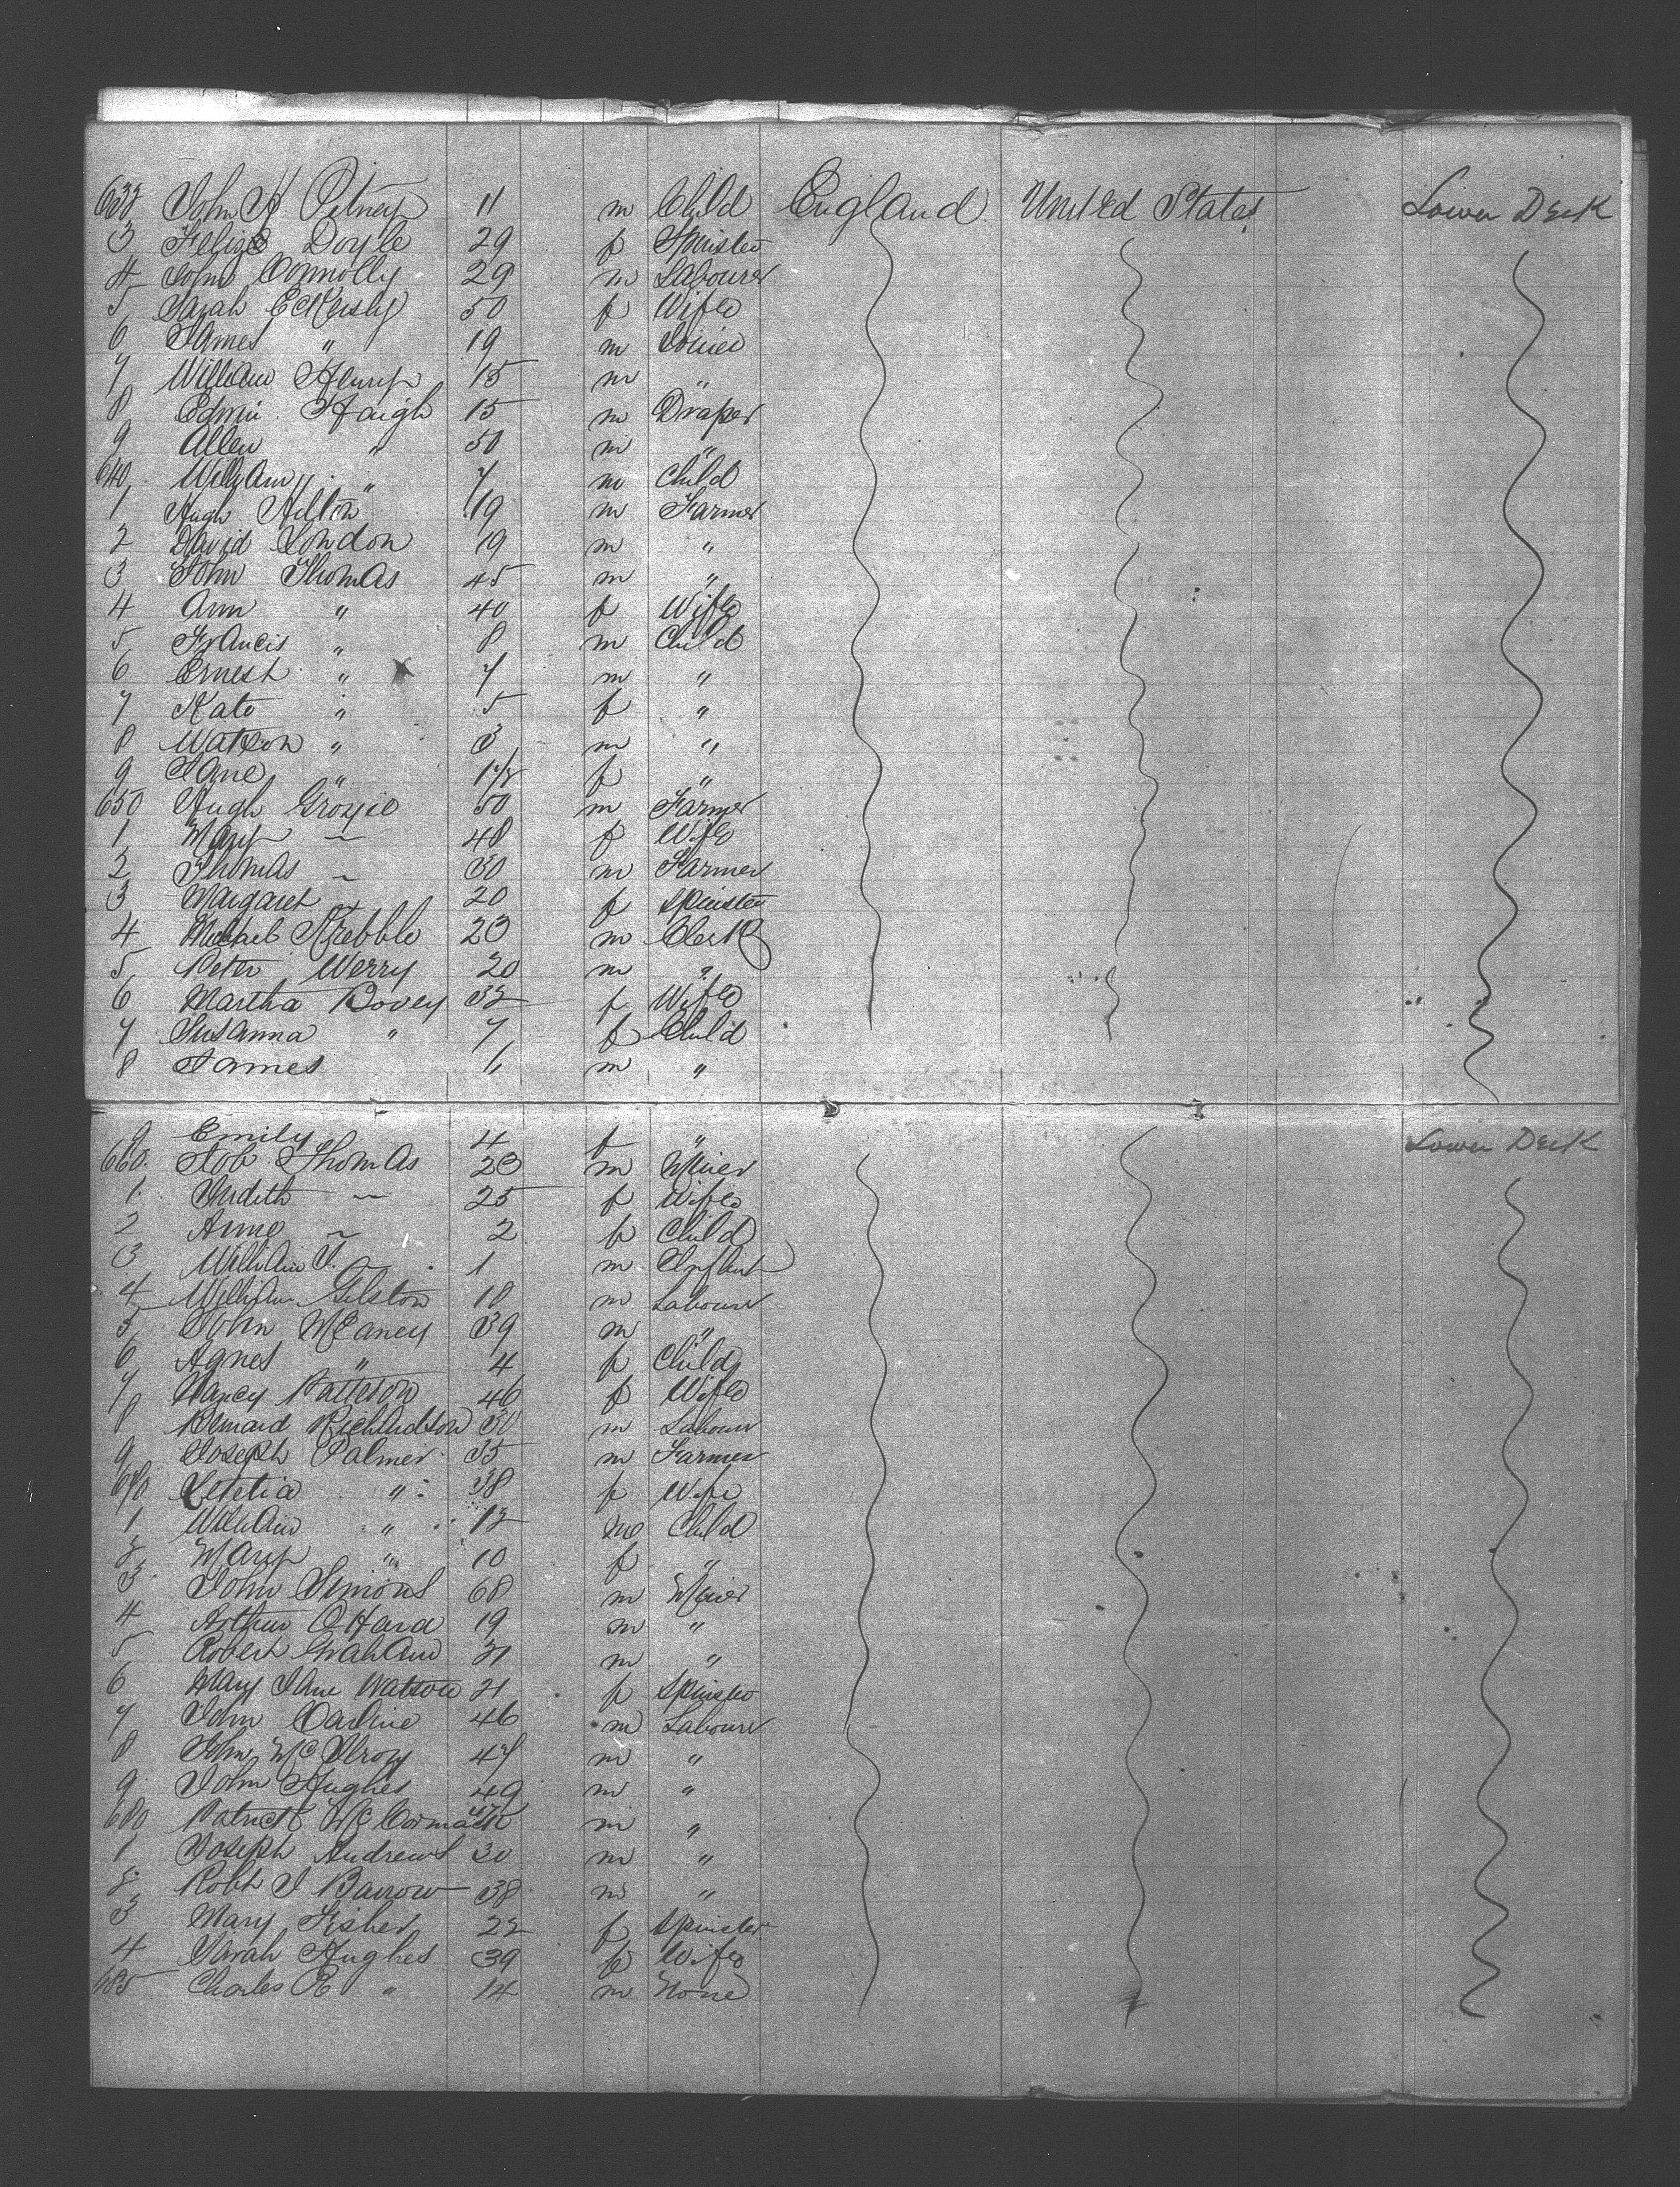 632 John H. Pitney 11 m Child England United States Lower Deck
3 Doyle 29 f Spinster
4 John Connolly 29 m Labourer
5 Sarah Eckersly 50 f Wife
6 James " 19 m
7 William Henry 15 m "
8 Edwin Haigh 15 m Draper
9 Allen " 50 m "
640 William " 7 m Child
1 Hugh Hilton 19 m Farmer
2 David London 19 m "
3 John Thomas 45 m "
4 Ann " 40 f Wife
5 Francis " 8 m Child
6 Ernest " 7 m "
7 Kate " 5 f "
8 Watson " 3 m "
9 Jane " f "
650 Hugh 50 m Farmer
1 Mary ~ 48 f Wife
2 Thomas ~ 30 m Farmer
3 Margaret 20 f Spinster
4 Michael Krebble 23 m Clerk
5 Peter Werry 20 m "
6 Martha Bovey 32 f Wife
7 Susanna " 7 f Child
8 James 6 m "
9 Emily 4 f " Lower Deck
660 Job Thomas 23 m Miner
1 Judith ~ 25 f Wife
2 Anne ~ 2 f Child
3 William J. ~ 1 m Infant
4 William Gelston 18 m Labourer
5 John McCaney 39 m "
6 Agnes " 4 f Child
7 Nancy Patteson 46 f Wife
8 Bernard Richardson 30 m Labour
9 Joseph Palmer 35 m Farmer
670 Letetia " 38 f Wife
1 William " 12 m Child
2 Mary " 10 f "
3 John Simons 68 m Miner
4 Arthur O Hara 19 m "
5 Robert Graham 21 m "
6 Mary Jane Watson 21 f Spinster
7 John Carline 46 m Labourer
8 John McIlroy 47 m "
9 John Hughes 49 m "
680 Patrick McCormack m "
1 Joseph Andrews 30 m "
2 Robt J Barrow 38 m "
3 Mary Fisher 22 f Spinster
4 Sarah Hughes 39 f Wife
685 Charles R " 14 m None